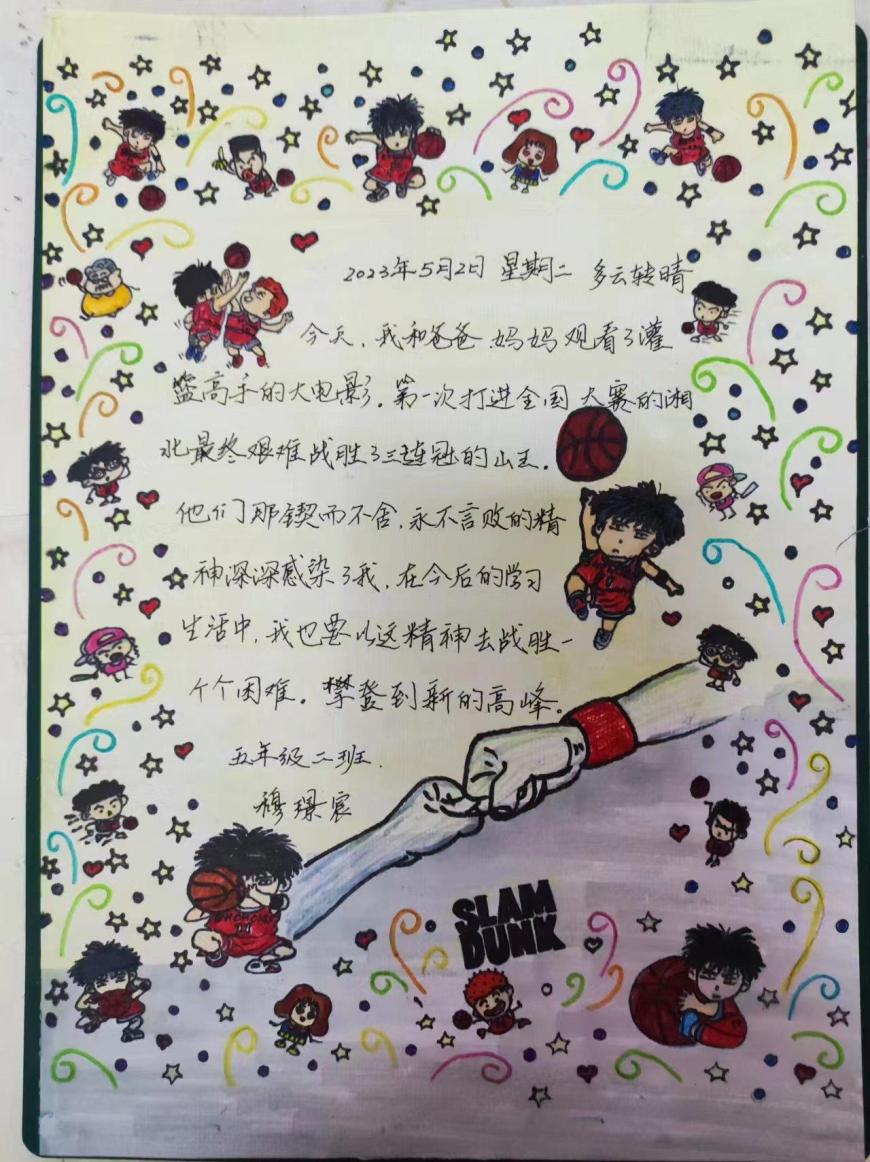 2023年5月2日 星期二 多云转晴
今天,我和爸爸、妈妈观看了灌
篮高手的大电影。第一次打进全国大赛的湘
北最终艰难战胜了三连冠的山王。
他们那锲而不舍,永不言败的精
神深深感染了我,在今后的学习
生活中,我也要以这精神去战胜一
个个困难。攀登到新的高峰。
五年级二班.
穆璟宸
SHOHOKU
11
SLAM
DUNK